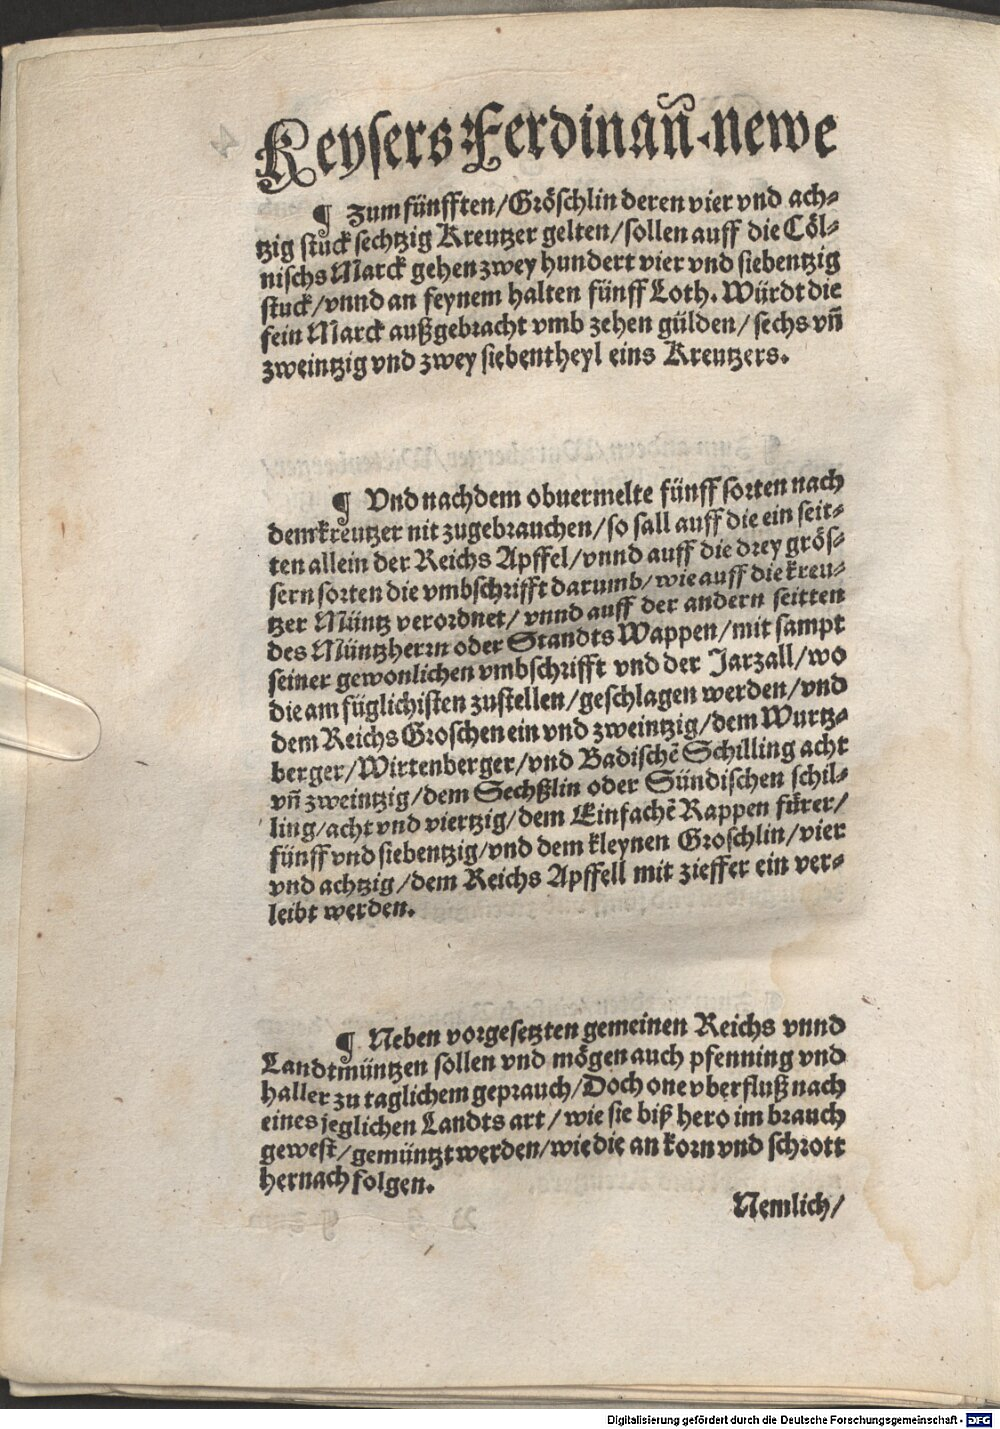 Keysers Ferdinan̄. newe
¶ Zum fünfften/Gröschlin deren vier vnd ach⸗
tzig stuck sechtzig Kreutzer gelten/sollen auff die Cöl⸗
nischs Marck gehen zwey hundert vier vnd siebentzig
stuck/vnnd an feynem halten fünff Loth. Würdt die
fein Marck außgebracht vmb zehen gülden/sechs vn̄
zweintzig vnd zwey siebentheyl eins Kreutzers.
¶ Vnd nachdem obuermelte fünff sorten nach
dem kreutzer nit zugebrauchen/so sall auff die ein seit⸗
ten allein der Reichs Apffel/vnnd auff die drey grös⸗
sern sorten die vmbschrifft darumb/wie auff die kreu⸗
tzer Müntz verordnet/vnnd auff der andern seitten
des Müntzherrn oder Standts Wappen/mit sampt
seiner gewonlichen vmbschrifft vnd der Jarzall/wo
die am füglichisten zustellen/geschlagen werden/vnd
dem Reichs Groschen ein vnd zweintzig/dem Wurtz⸗
berger/Wirtenberger/vnd Badischē Schilling acht
vn̄ zweintzig/dem Sechßlin oder Sündischen schil⸗
ling/acht vnd viertzig/dem Einfachē Rappen fürer/
fünff vnd siebentzig/vnd dem kleynen Groschlin/vier
vnd achtzig/dem Reichs Apffell mit zieffer ein ver⸗
leibt werden.
¶ Neben vorgesetzten gemeinen Reichs vnnd
Landtmüntzen sollen vnd mögen auch pfenning vnd
haller zu taglichem geprauch/Doch one vberfluß nach
eines jeglichen Landts art/wie sie biß hero im brauch
gewest/gemüntzt werden/wie die an korn vnd schrott
hernach folgen.
Nemlich/
Digitalisierung gefördert durch die Deutsche Forschungsgemeinschaft - DFG